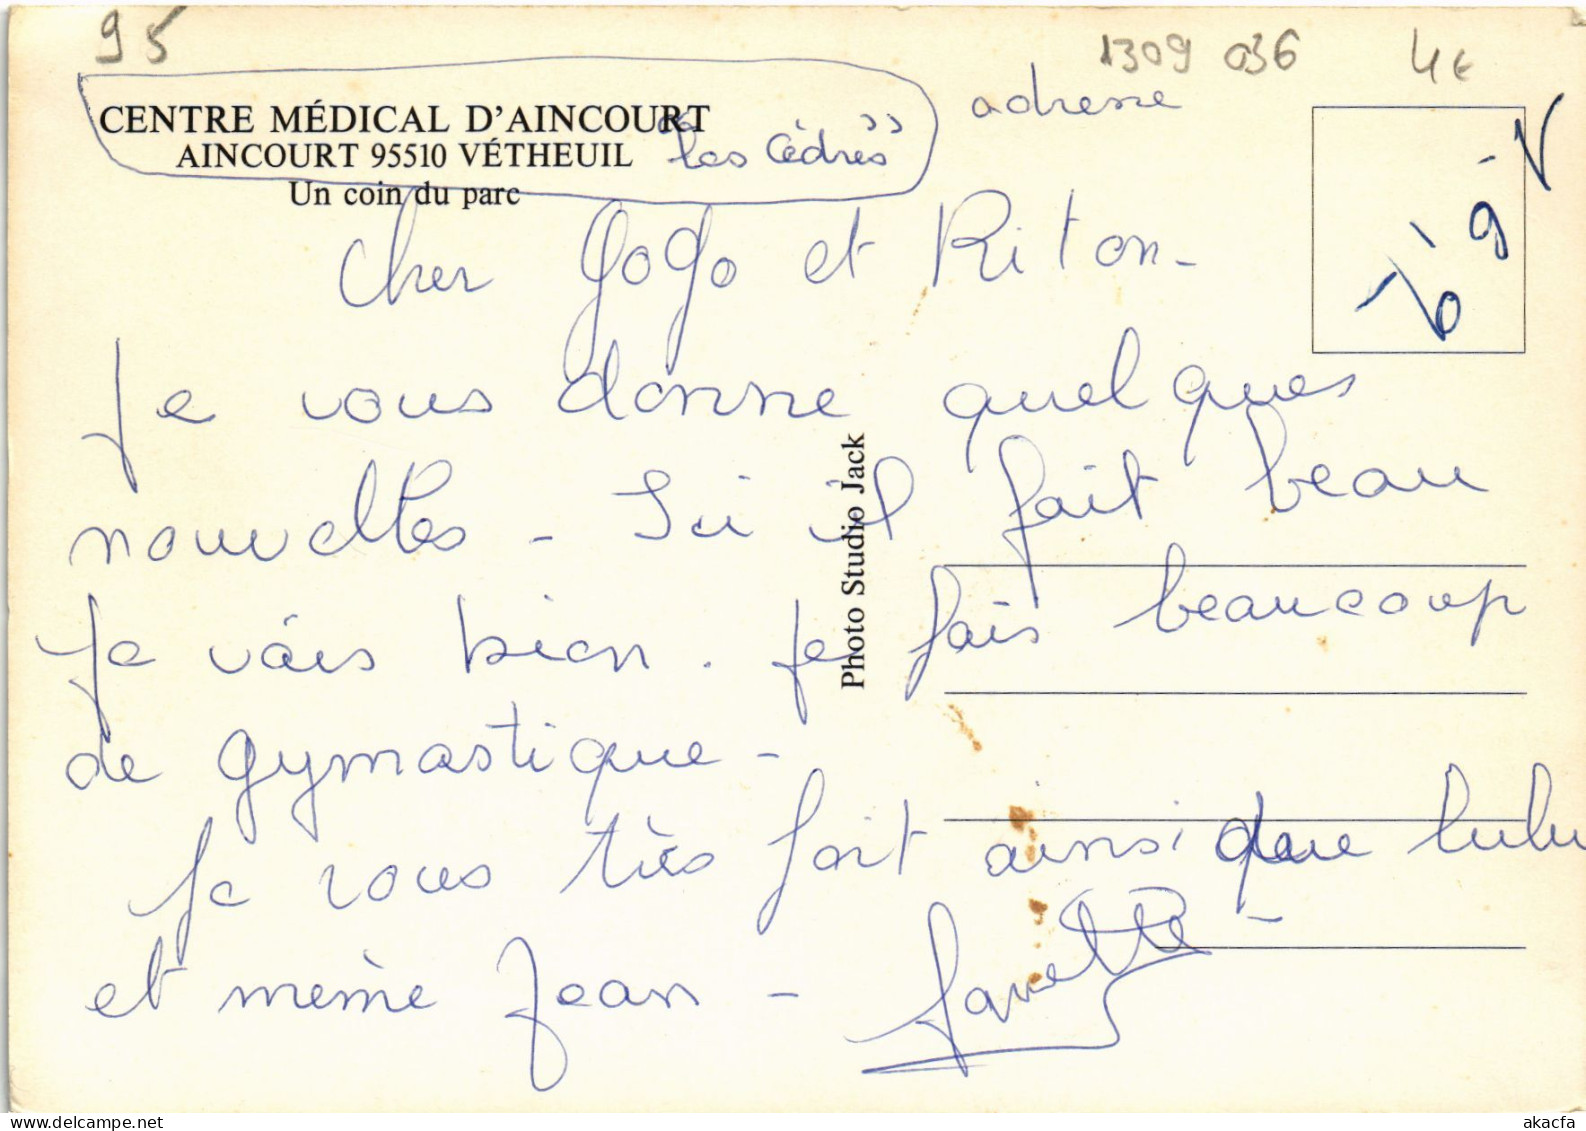 95
1309 036 4€
CENTRE MÉDICAL D'AINCOURT
adresse
AINCOURT 95510 VÉTHEUIL "Les Cèdres"
Un coin du parc
Cher Gogo et Riton -
Je vous donne quelques
nouvelles - Ici il fait beau
Je vais bien. Je fais beaucoup
de gymastique -
Je vous très fort ainsi que lulu
et même Jean -
Photo Studio Jack
www.delcampe.net
akacfa